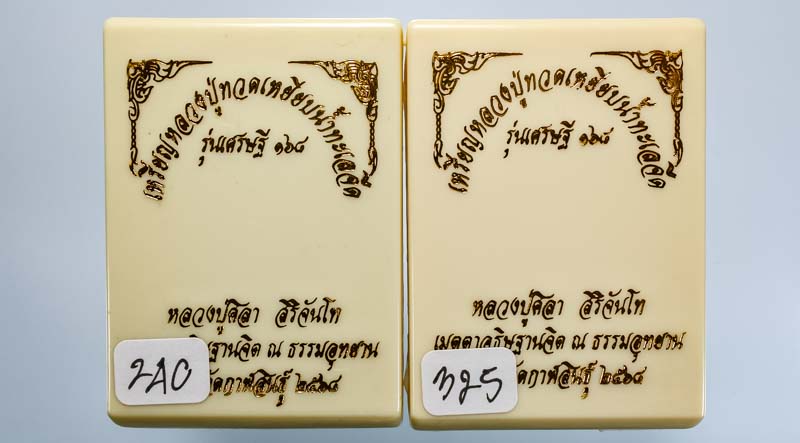 เหรียญหลวงปู่ทวดเหยียบน้ำทะเลจืด
รุ่นเศรษฐี ๑๖๘
หลวงปู่ศิลา สิริจันโท
ณ ธรรมอุทยาน
กาฬสินธุ์ ๒๕๖๔
240
เหรียญหลวงปู่ทวดเหยียบน้ำทะเลจืด
รุ่นเศรษฐี ๑๖๘
หลวงปู่ศิลา สิริจันโท
เมตตาอธิษฐานจิต ณ ธรรมอุทยาน
กาฬสินธุ์ ๒๕๖๔
325